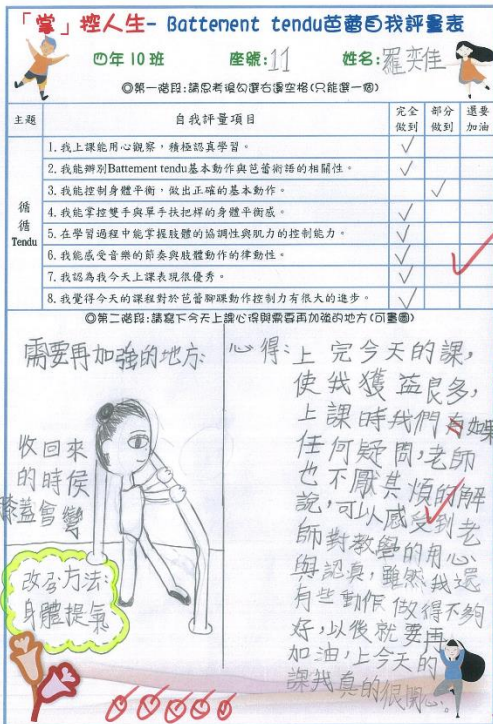 「掌」控人生- Battement tendu芭蕾自我評量表
四年10班 座號:11 姓名:羅奕佳
◎第一階段:請思考後勾選右邊空格(只能選一個)
主題 自我評量項目 完全做到 部分做到 還要加油
循循Tendu
1. 我上課能用心觀察,積極認真學習。 ✓
2. 我能辨別Battement tendu基本動作與芭蕾術語的相關性。 ✓
3. 我能控制身體平衡,做出正確的基本動作。 ✓
4. 我能掌控雙手與單手扶把桿的身體平衡感。 ✓
5. 在學習過程中能掌握肢體的協調性與肌力的控制能力。 ✓
6. 我能感受音樂的節奏與肢體動作的律動性。 ✓
7. 我認為我今天上課表現很優秀。 ✓
8. 我覺得今天的課程對於芭蕾腳踝動作控制力有很大的進步。 ✓
◎第二階段:請寫下今天上課心得與需要再加強的地方(可畫圖)
需要再加強的地方:
收回來
的時侯
膝蓋會彎
改吝方法:
身體提氣
心得:上完今天的課,
使我獲益良多,
上課時我們有如果
任何疑問,老師
也不厭其煩的解
說,可以感受到老
師對教學的用心
與認真,雖然我還
有些動作做得不夠
好,以後就要再
加油,上今天的
課我真的很開心。